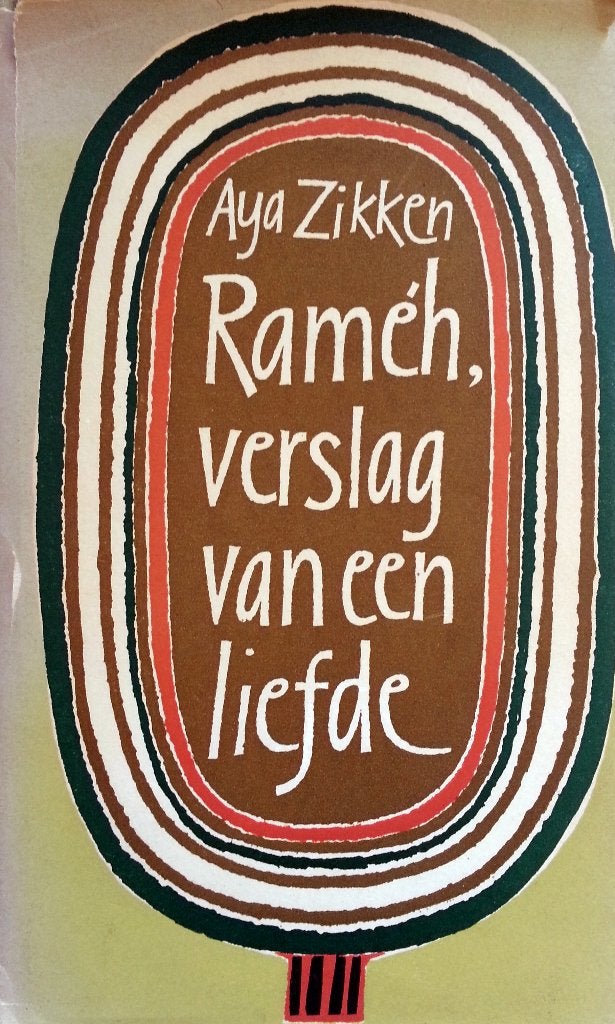 Aya Zikken
Raméh,
verslag
van een
liefde